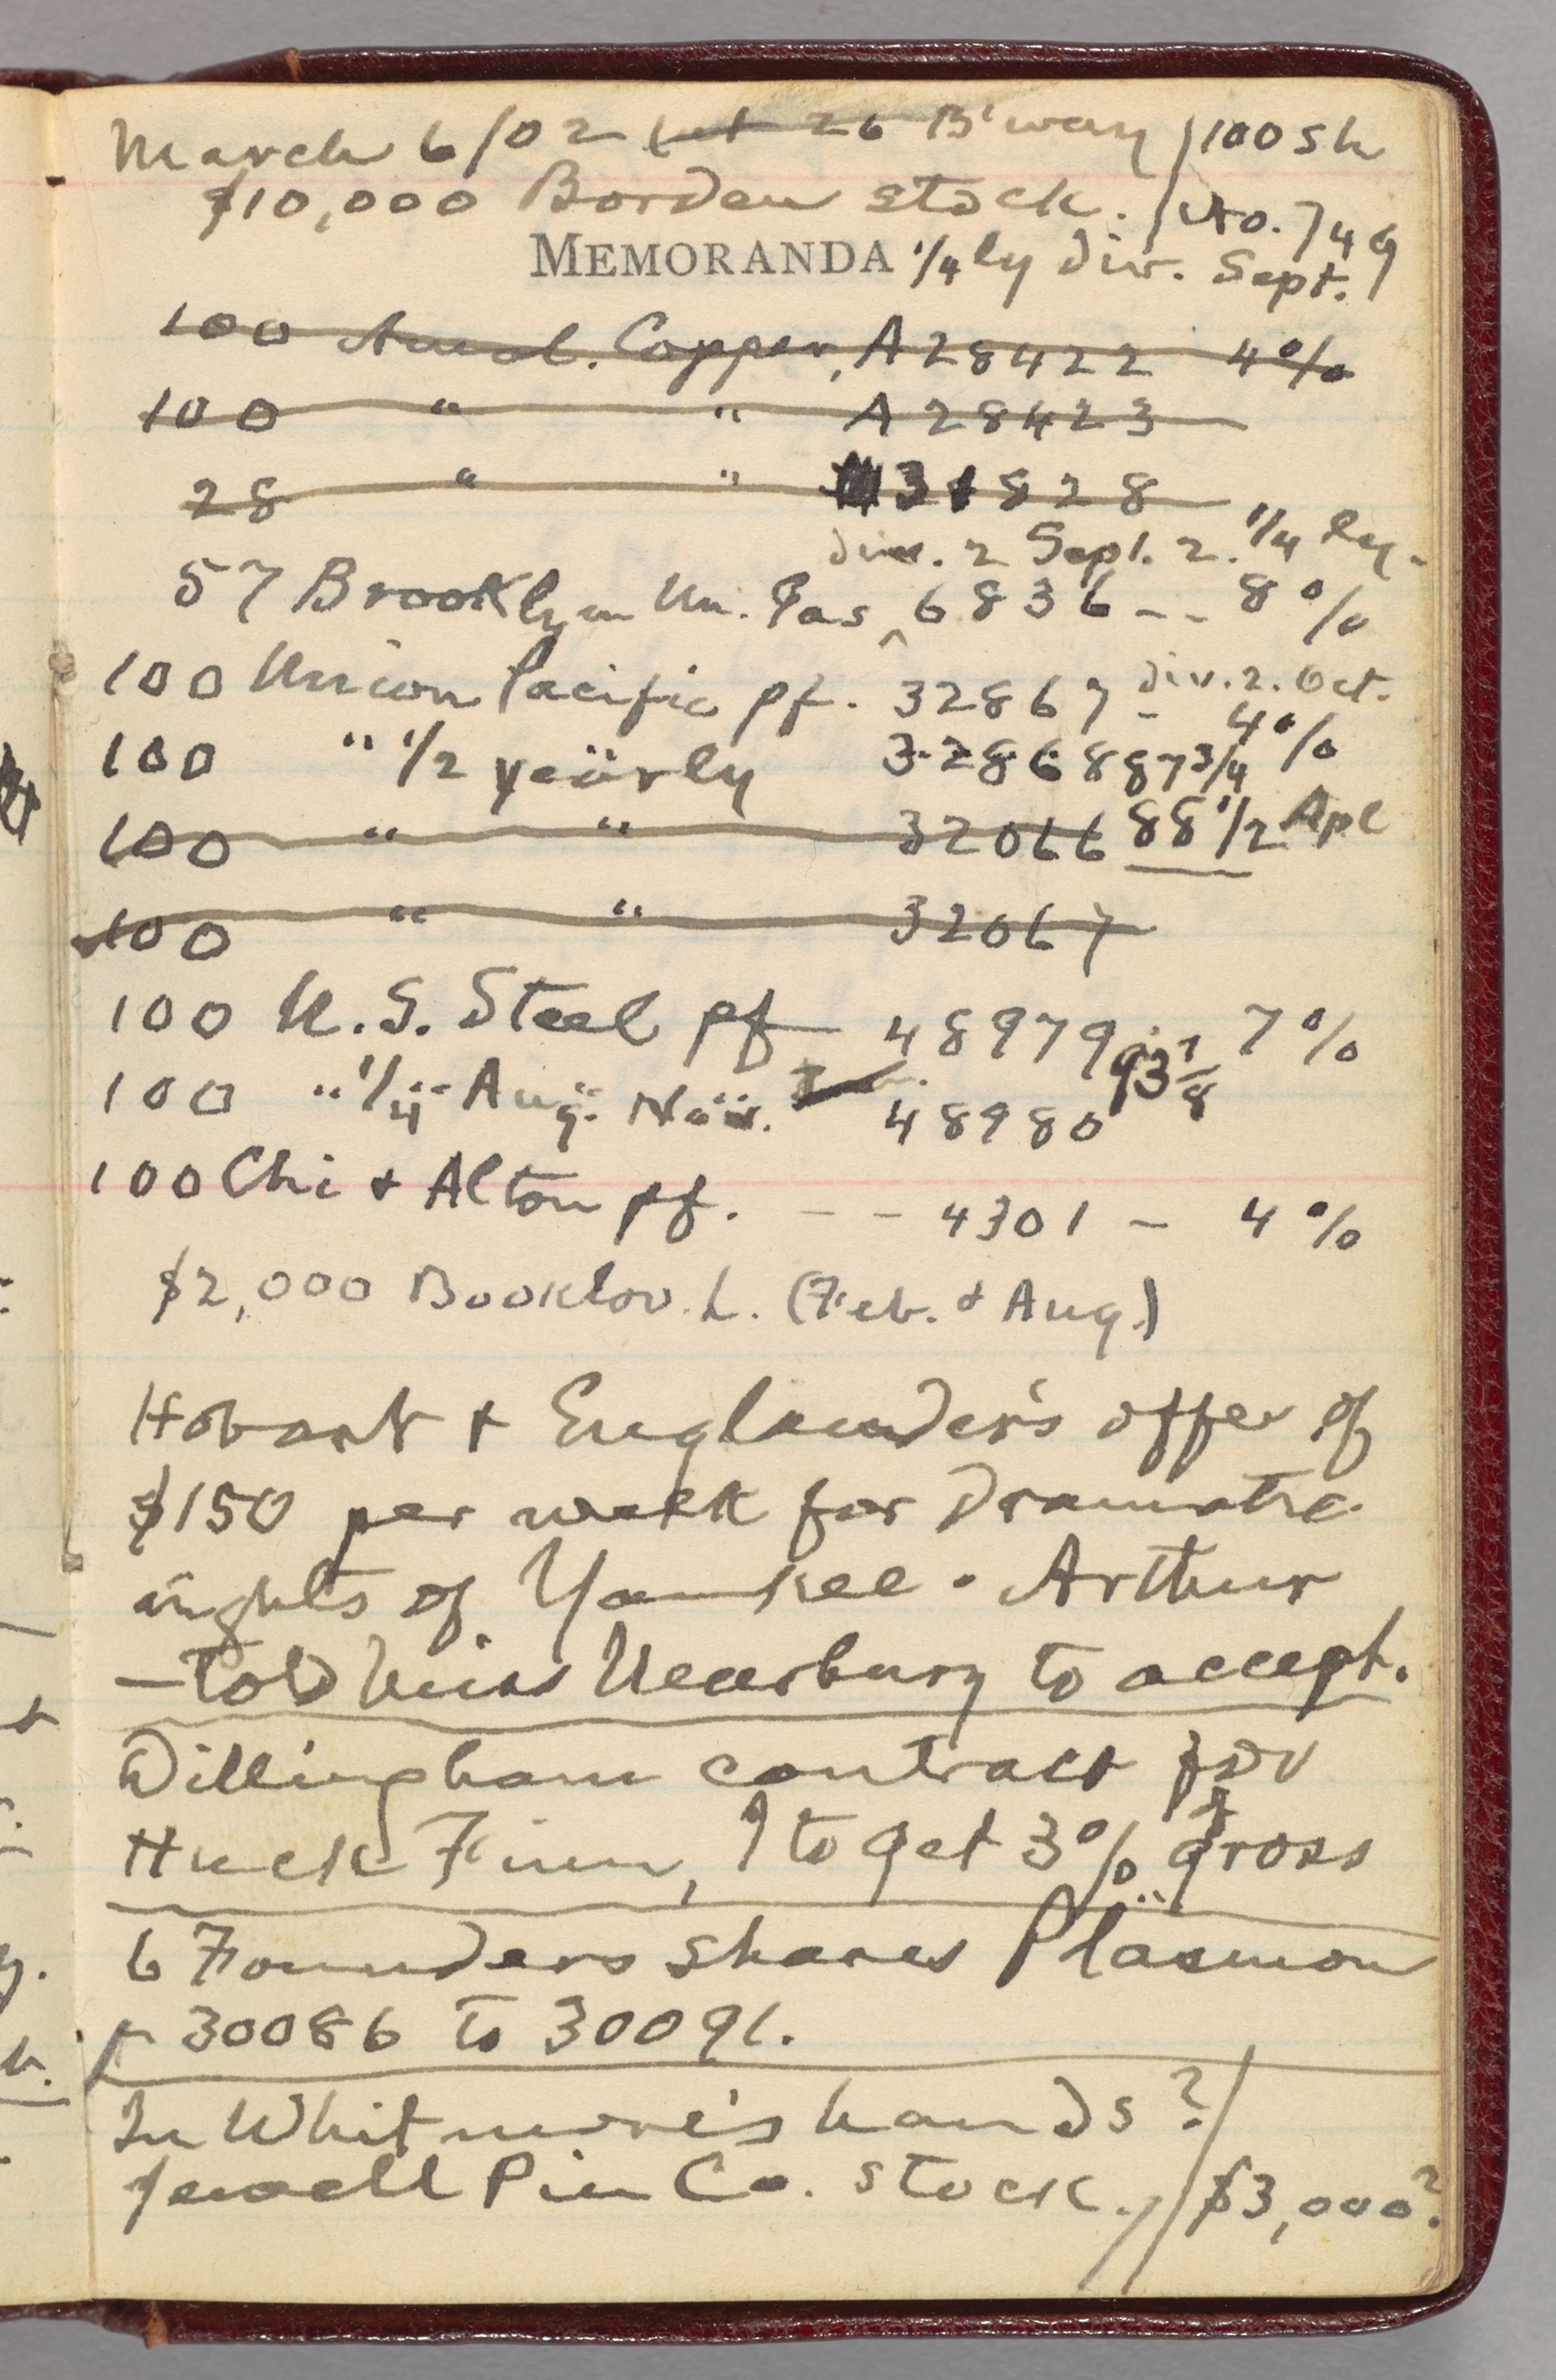 March 6/02 26 B'way / 100 sh
$10,000 Borden stock. / No. 749
MEMORANDA 1/4ly Div. Sept.
100 Amal. Copper, A28422 4%
100 " " A28423
28 " " 31828
Div. 2 Sept. 2. 1/4 ly.
57 Brooklyn Un. Gas ^ 6836 -- 8%
100 Union Pacific pf. 32867 - Div. 2. Oct.
4%
100 " 1/2 yearly 32868 87 3/4
100 " " 32066 88 1/2 Apl
100 " " 32067
100 U.S. Steel pf — 48979 93 7/8 7%
100 " 1/4 Aug. Nov. 48980
100 Chi & Alton pf. -- 4301 - 4%
$2,000 Booklov. L. (Feb. & Aug.)
Hobart & Englander's offer of
$150 per week for Dramatic
rights of Yankee. Arthur
—told Miss Marbury to accept.
Dillingham contract for
Huck Finn, I to get 3% gross
6 Founders shares Plasmon
30086 to 30091.
In Whitmore's hands?/
Jewell Pin Co. stock. / $3,000?